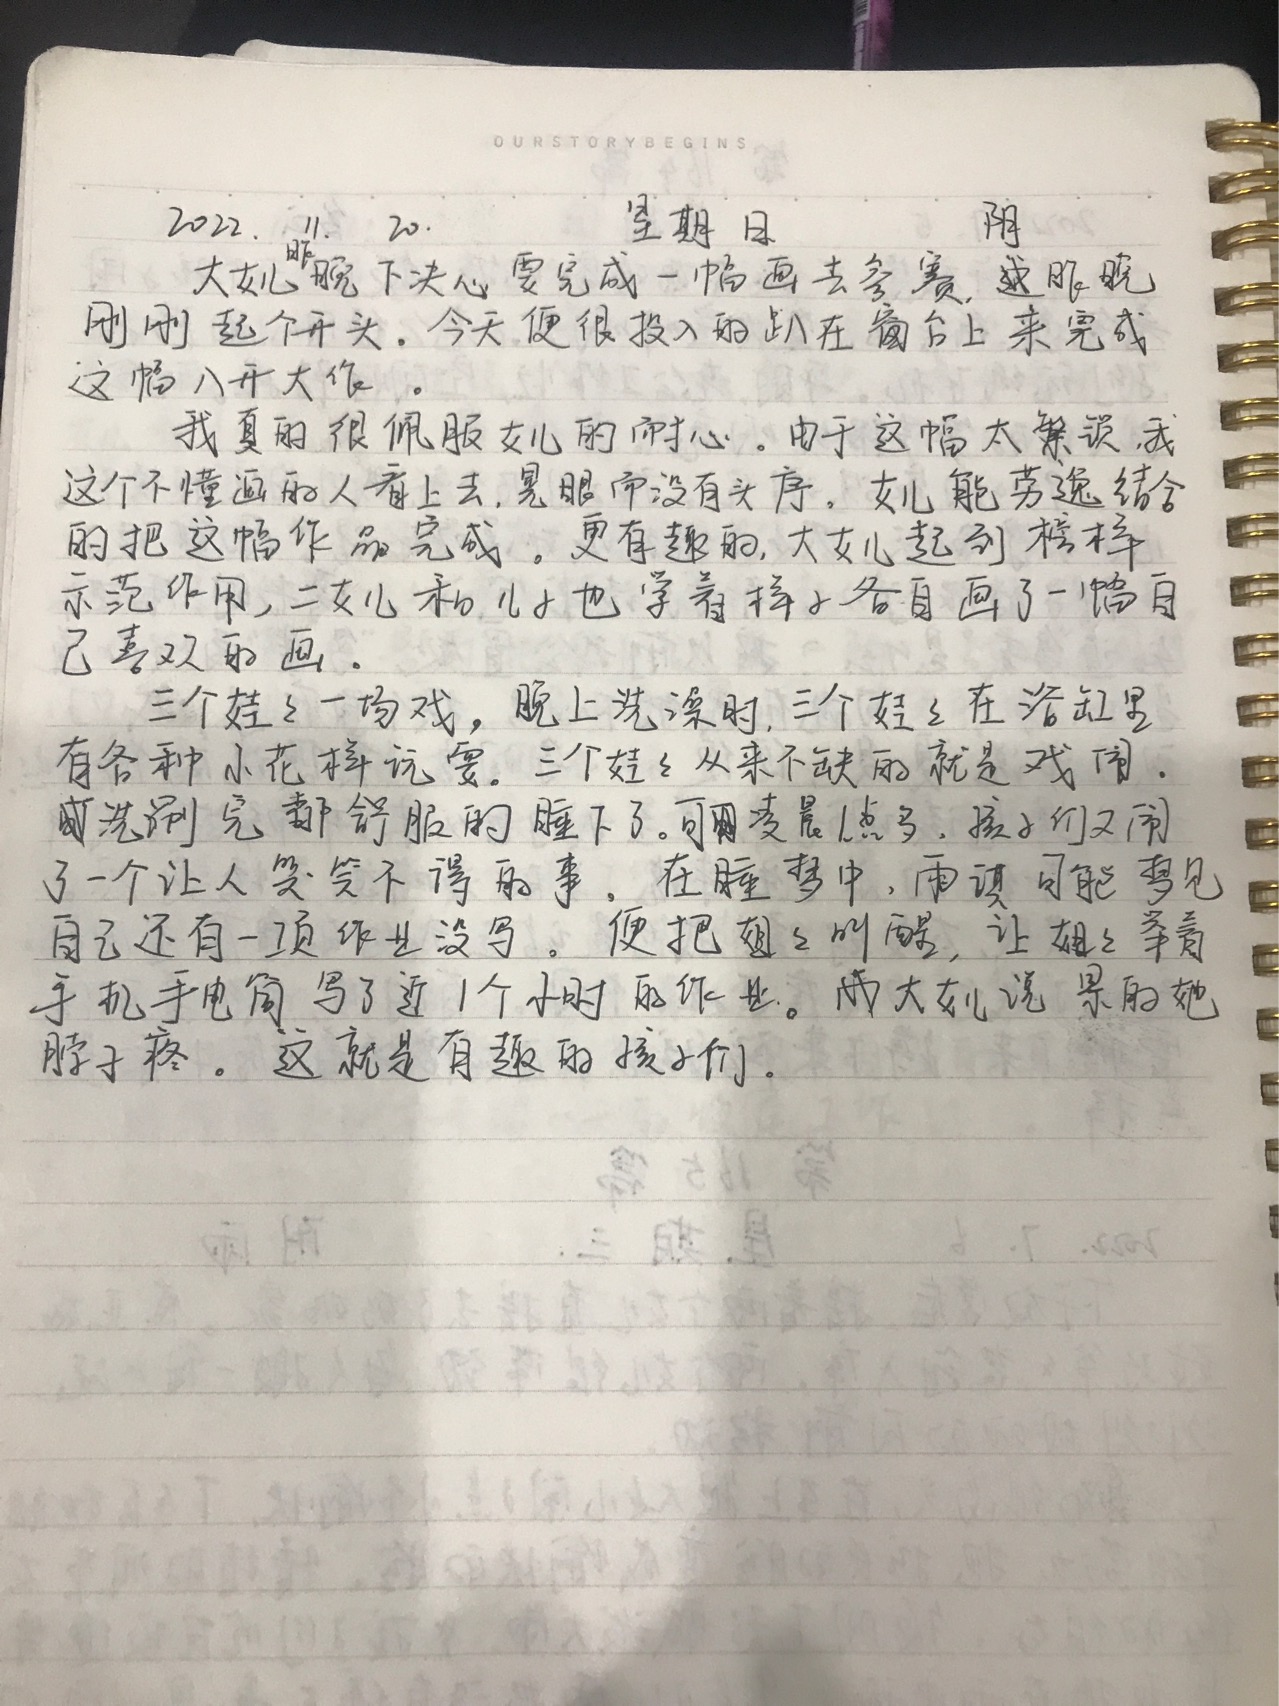 OURSTORYBEGINS
2022. 11. 20. 星期日 阴
大女儿昨晚下决心要完成一幅画去参赛,昨晚
刚刚起个开头。今天便很投入的趴在窗台上来完成
这幅八开大作。
我真的很佩服女儿的耐心。由于这幅太繁琐,我
这个不懂画的人看上去,晃眼而没有头序。女儿能劳逸结合
的把这幅作品完成。更有趣的,大女儿起到榜样
示范作用,二女儿和儿子也学着样子各自画了一幅自
己喜欢的画。
三个娃々一场戏,晚上洗澡时,三个娃々在浴缸里
有各种小花样玩耍。三个娃々从来不缺的就是戏闹.
洗涮完都舒服的睡下了。可凌晨1点多,孩子们又闹
了一个让人哭笑不得的事。在睡梦中,雨琪可能梦见
自己还有一项作业没写。便把姐々叫醒,让姐々举着
手机手电筒写了近1个小时的作业。大女儿说累的她
脖子疼。这就是有趣的孩子们.